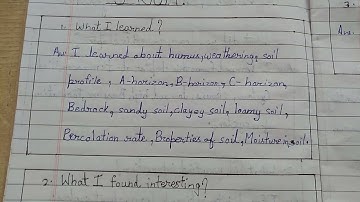 1. What I learned?
Ans I learned about humus, weathering, soil
profile, A-horizon, B-horizon, C-horizon,
Bedrock, sandy soil, clayey soil, loamy soil,
Percolation rate, Properties of soil, Moisture in soil.
2. What I found interesting?
3.
Ans